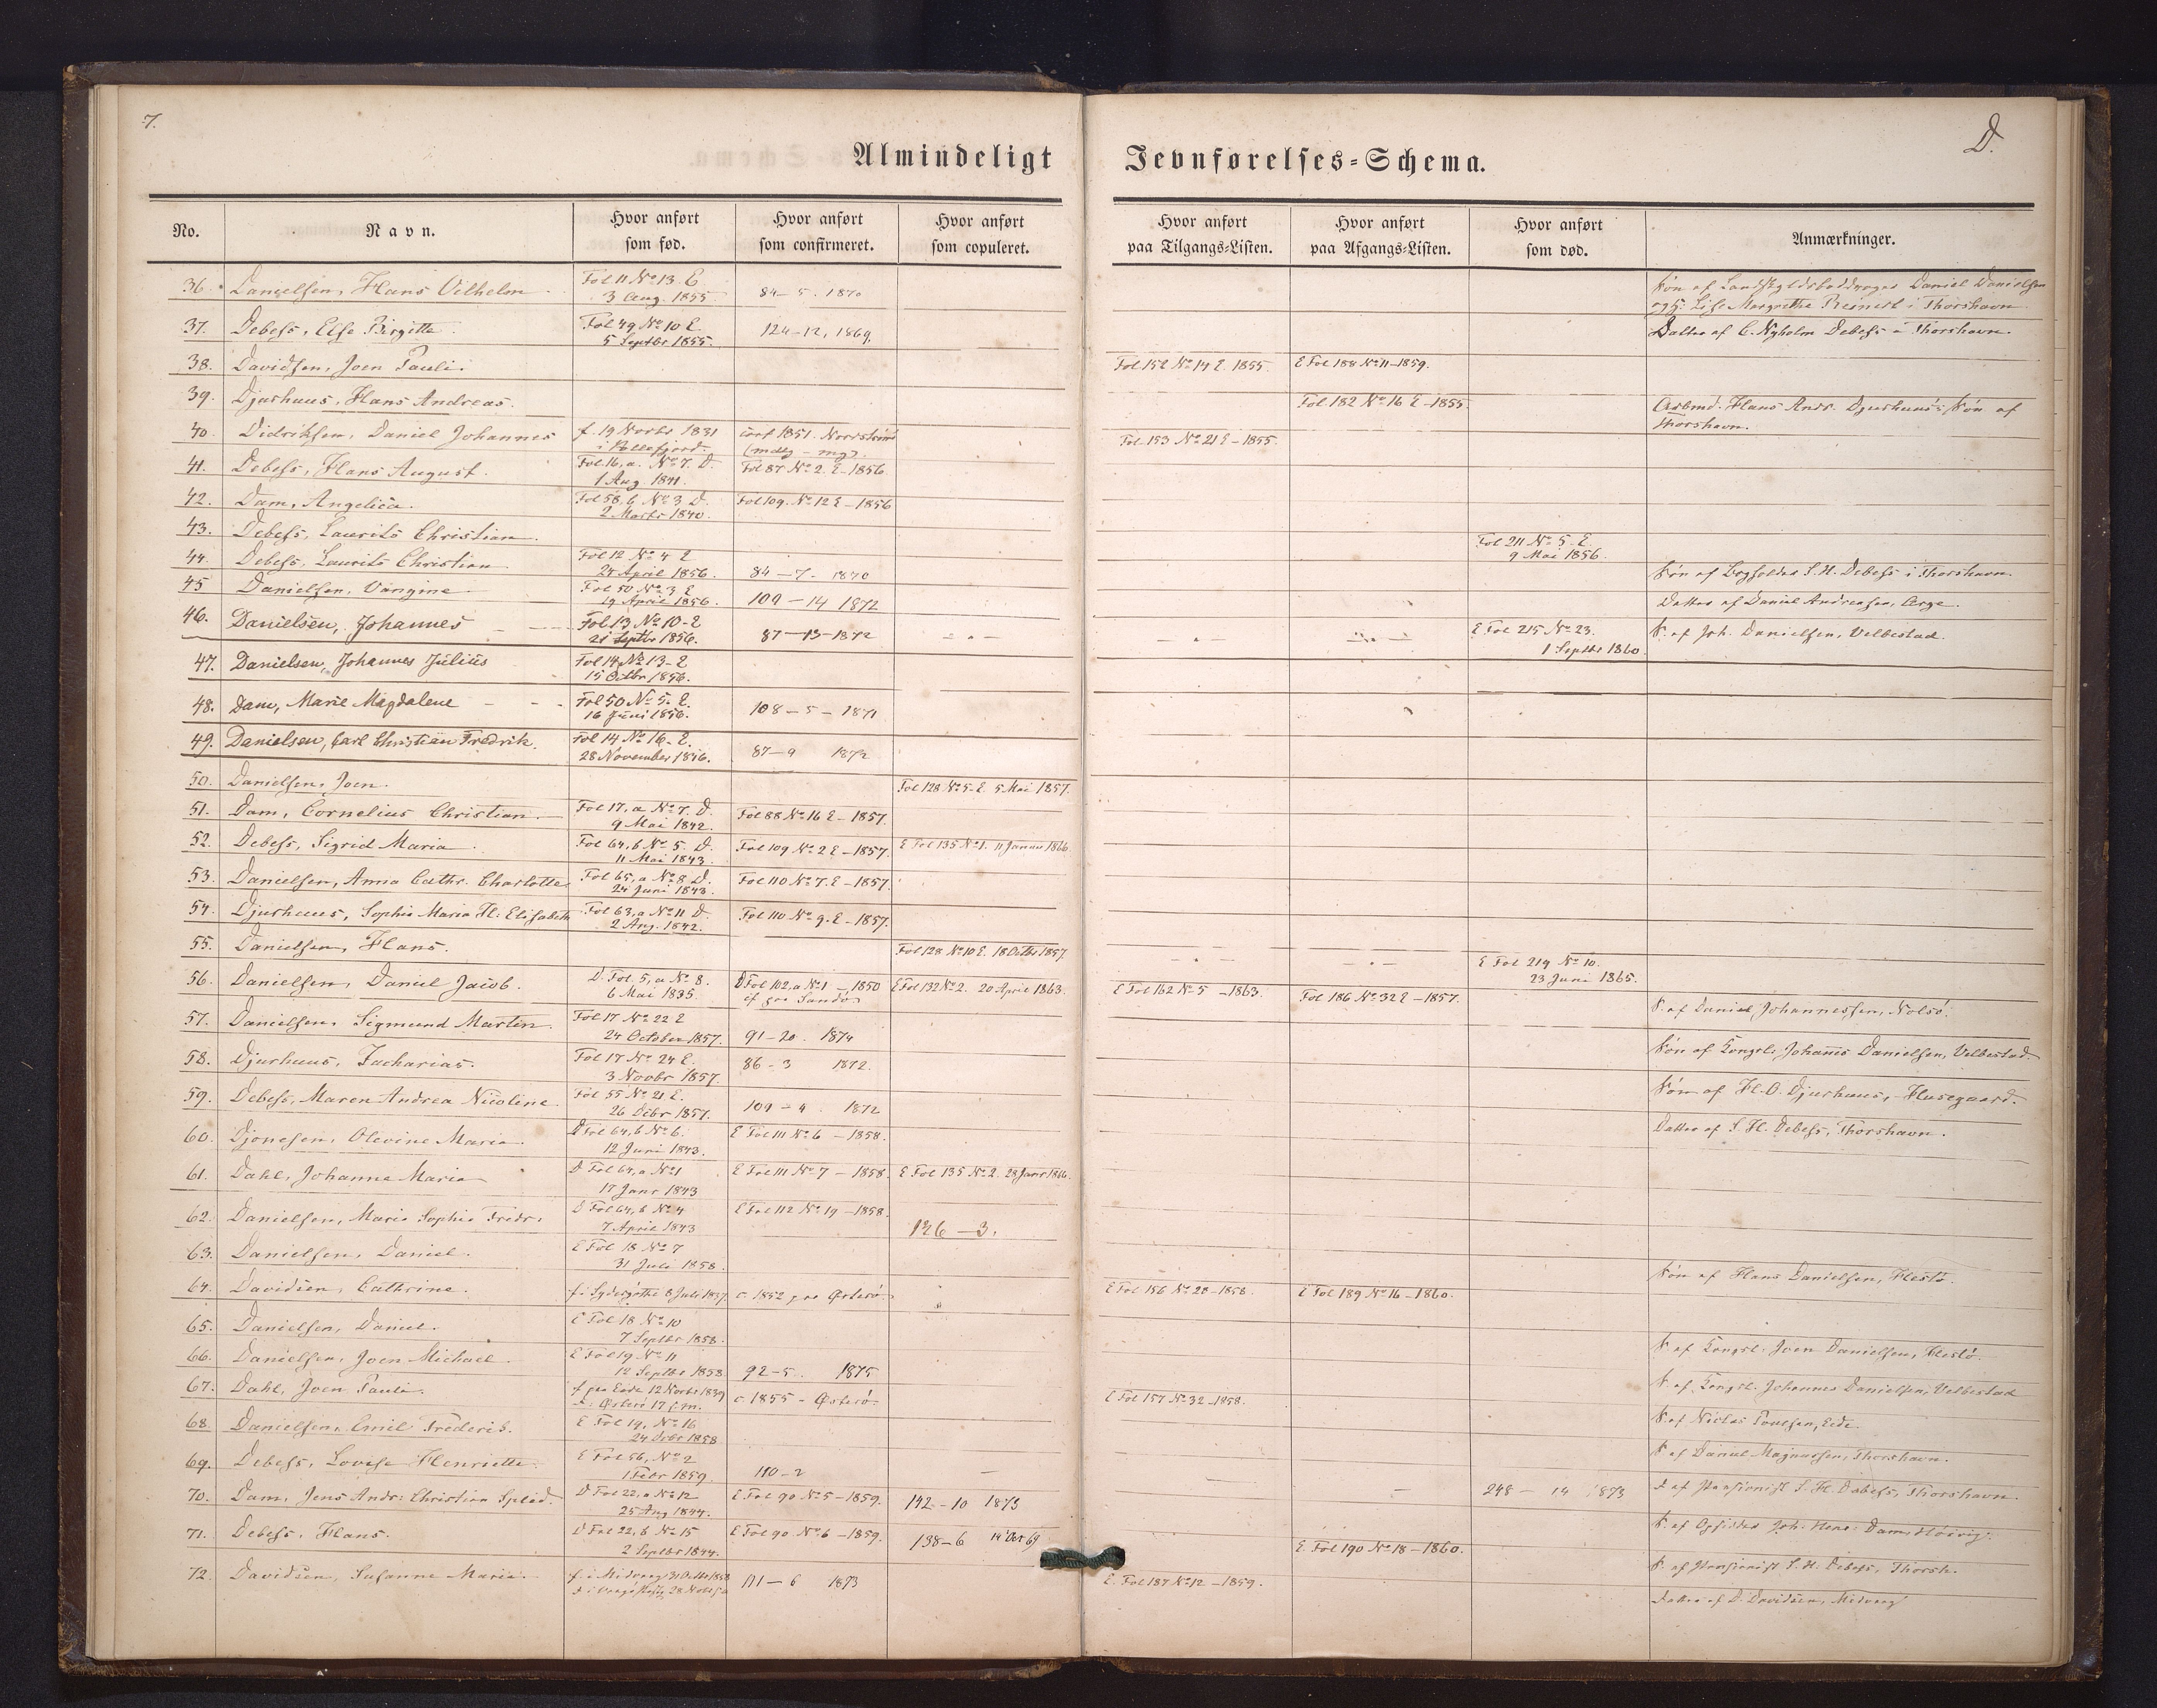 7.
D.
Almindeligt Jevnførelses-Schema.
No. Navn. Hvor anført som fød. Hvor anført som confirmeret. Hvor anført som copuleret. Hvor anført paa Tilgangs-Listen. Hvor anført paa Afgangs-Listen. Hvor anført som død. Anmærkninger.
36. Danielsen, Hans Vilhelm Fol 11 No 13. E. 3 Aug. 1855 84-5. 1870 Søn af Daniel Danielsen
og H: Lise Margrethe Reinert i Thorshavn
37. Debess, Else Birgitte. Fol 49 No 10 E. 5 Septbr 1855. 124-12, 1869. Datter af C. Nyholm Debess i Thorshavn.
38. Davidsen, Joen Pauli. Fol. 152 No 14 E. 1855. E Fol 188 No 11-1859.
39. Djurhuus, Hans Andreas. Fol. 182 No 16 E-1855. Arbmd. Hans Andr. Djurhuus's Søn af
Thorshavn.
40. Didriksen, Daniel Johannes f. 19 Novbr 1831 conf 1851. Norrstrømø Fol. 153 No 21 E-1855.
i Kollefjord. (mdlg - mg).
41. Debess, Hans August. Fol 16, a. No 7. D. 1 Aug. 1841. Fol 87 No 2. E-1856
42. Dam, Angelica. Fol 58, b No 3 D. 2 Marts 1840. Fol 109. No 12 E-1856
43. Debess, Laurits Christian. Fol 211 No 5-E. 9 Mai 1856.
44. Debess, Laurits Christian Fol 12 No 4 E 24 April 1856. 84-7- 1870 Søn af Bogholder S. H. Debess i Thorshavn.
45 Danielsen, Vangine Fol 50 No 3 E 19 April 1856. 109-14 1872 Datter af Daniel Andreasen, Arge.
46. Danielsen, Johannes Fol 13 No 10-E 21 Septbr 1856. 87-13-1872 E Fol 215 No 23. 1 Septbr 1860 S. af Joh. Danielsen, Velbestad.
47. Danielsen, Johannes Julius Fol 14 No 13-E 15 Octbr 1856.
48. Dam, Marie Magdalene Fol 50 No 5. E. 16 Juni 1856. 108-5-1871
49. Danielsen, Carl Christian Fredrik. Fol 14 No 16-E. 28 November 1856. 87-9 1872
50. Danielsen, Joen. Fol 128 No 5-E. 5 Mai 1857.
51. Dam, Cornelius Christian. Fol 17, a No 7. D. 9 Mai 1842. Fol 88 No 16 E-1857.
52. Debess, Sigrid Maria Fol 64, b No 5. D. 11 Mai 1843. Fol 109 No 2 E-1857. E Fol 135 No 1. 11 Januar 1866.
53. Danielsen, Anna Cathr. Charlotte Fol 65, a No 8 D. 24 Juni 1843. Fol 110 No 7. E-1857.
54. Djurhuus, Sophie Maria H. Elisabeth Fol 63, a No 11 D. 2 Aug. 1842. Fol 110 No 9. E-1857.
55. Danielsen, Hans. Fol 128 No 10 E. 18 Octbr 1857 E Fol 219 No 10. 23 Juni 1865.
56. Danielsen, Daniel Jacob. D. Fol. 5, a No 8. 6 Mai 1835. D Fol 102, a No 1 - 1850 E Fol 132 No 2. 20 April 1863. E Fol 162 No 5 - 1863. Fol 186 No 32 E-1857. S. af Daniel Johannessen, Nolsø.
cf paa Sandø
57. Danielsen, Sigmund Morten. Fol 17 No 22 E 24 October 1857. 91-20. 1874 Søn af Kongsb. Johannes Danielsen, Velbestad.
58. Djurhuus, Zacharias. Fol 17 No 24 E. 3 Novbr 1857. 86-3 1872. Søn af H. O. Djurhuus, Husegaard.
59. Debess, Maren Andrea Nicoline Fol 55 No 21 E. 26 Decbr 1857. 109-4 1872 Datter af S H. Debess, Thorshavn.
60. Djonesen, Olevine Maria. D Fol 64, b No 6. 12 Juni 1843. E Fol 111 No 6 - 1858.
61. Dahl, Johanne Maria D Fol 64, a No 1 17 Janr 1843 E Fol 111 No 7 - 1858. E Fol 135 No 2. 23 Janr 1866.
62. Danielsen, Maria Sophie Fredr. D Fol 64, b No 4 7 April 1843 E Fol 112 No 19 - 1858. 136-3.
63. Danielsen, Daniel. E Fol 18 No 7 31 Juli 1858. Søn af Hans Danielsen, Hestø.
64. Davidsen, Cathrine. f. i Sydergøthe 8 Juli 1837. c. 1852 paa Østerø. E Fol 156 No 28-1858. E Fol 189 No 16-1860.
65. Danielsen, Daniel. E Fol 18 No 10 7 Septbr 1858. S. af Kongsb. Joen Danielsen, Hestø.
66. Danielsen, Joen Michael. E Fol 19 No 11 12 Septbr 1858 92-5. 1875 S. af Kongsb. Johannes Danielsen, Velbestad
67. Dahl, Joen Pauli. f. paa Eede 12 Novbr 1839 c. 1855 - Østerø. E Fol 157 No 32-1858. S. af Niclas Poulsen, Eede.
68. Danielsen, Emil Frederik. E Fol 19, No 16 24 Decbr 1858 S. af Daniel Magnussen, Thorshavn.
69. Debess, Lovise Henriette. E Fol 56, No 2 1 Febr 1859. 110-2 248-14 1873 D. af Pensionist S. H. Debess, Thorshavn.
70. Dam, Jens Andr: Christian Splid. D Fol 22, a No 12 25 Aug 1844. E Fol 90 No 5-1859. 142-10 1873 S. af Opsidder Joh. Henr. Dam, Hoivig.
71. Debess, Hans. D Fol 22, b No 15 2 Septbr 1844. E Fol 90 No 6-1859. 138-6 14 Oct 69 E. Fol 190 No 18-1860. S. af Pensionist S. H. Debess, Thorsh.
72. Davidsen, Susanne Marie. f. i Midvaag 31 Octbr 1858 111-6 1873 E. Fol 187 No 12-1859. Datter af D. Davidsen, Midvaag